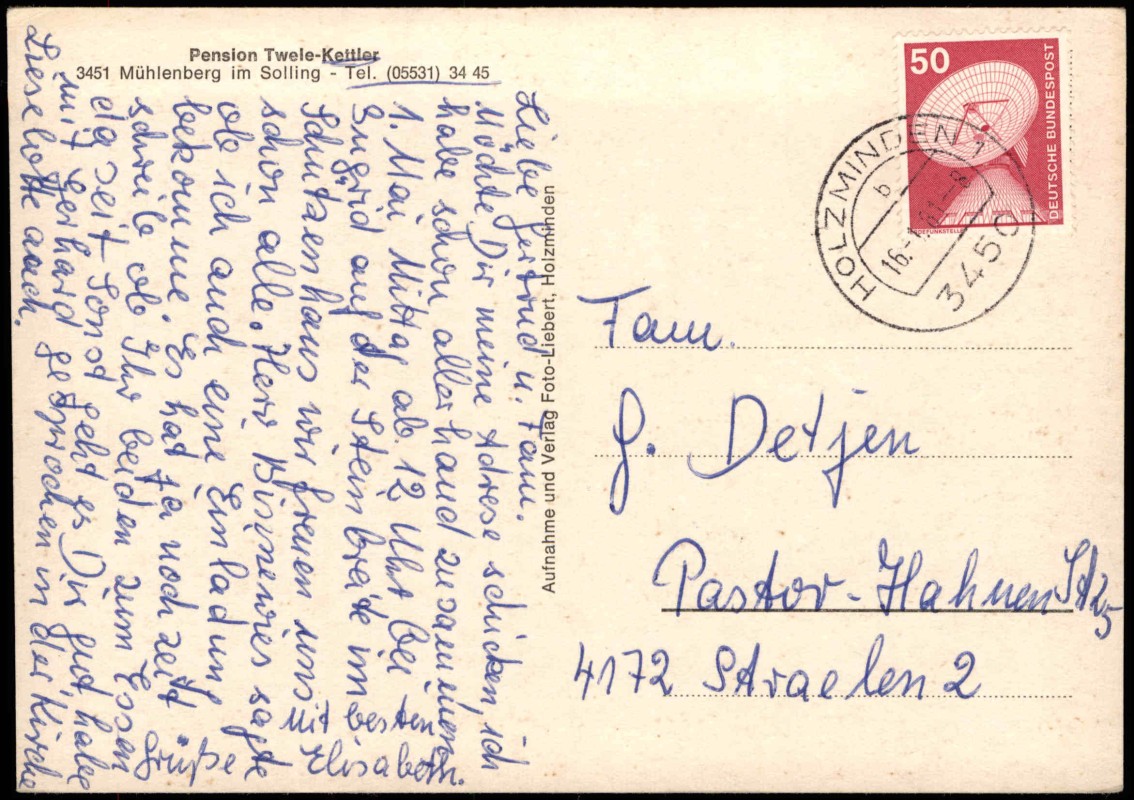 Pension Twele-Kettler
3451 Mühlenberg im Solling - Tel. (05531) 34 45
Liebe Gertrud u. Fam.
Möchte Dir meine Adrese schicken ich
habe schon allerhand zusammen
1. Mai Mittag ab 12 Uhr bei
Ingrid auf der Steinbreite im
Schützenhaus wir freuen uns
schon alle. Herr Binnewies sagte
ob ich auch eine Einladung
bekomme. Es hat ja noch zeit
schreib ob Ihr beiden zum Essen
da seit. Sonst geht es Dir gut, habe
mit Gerhard gesprochen in der Kirche
Lieselotte auch.
Mit besten
Grüße Elisabeth.
Aufnahme und Verlag Foto-Liebert, Holzminden
50
DEUTSCHE BUNDESPOST
ERDEFUNKSTELLE
HOLZMINDEN 1
b
3450
Fam.
G. Detjen
Pastor-Hahnen Str
4172 Straelen 2